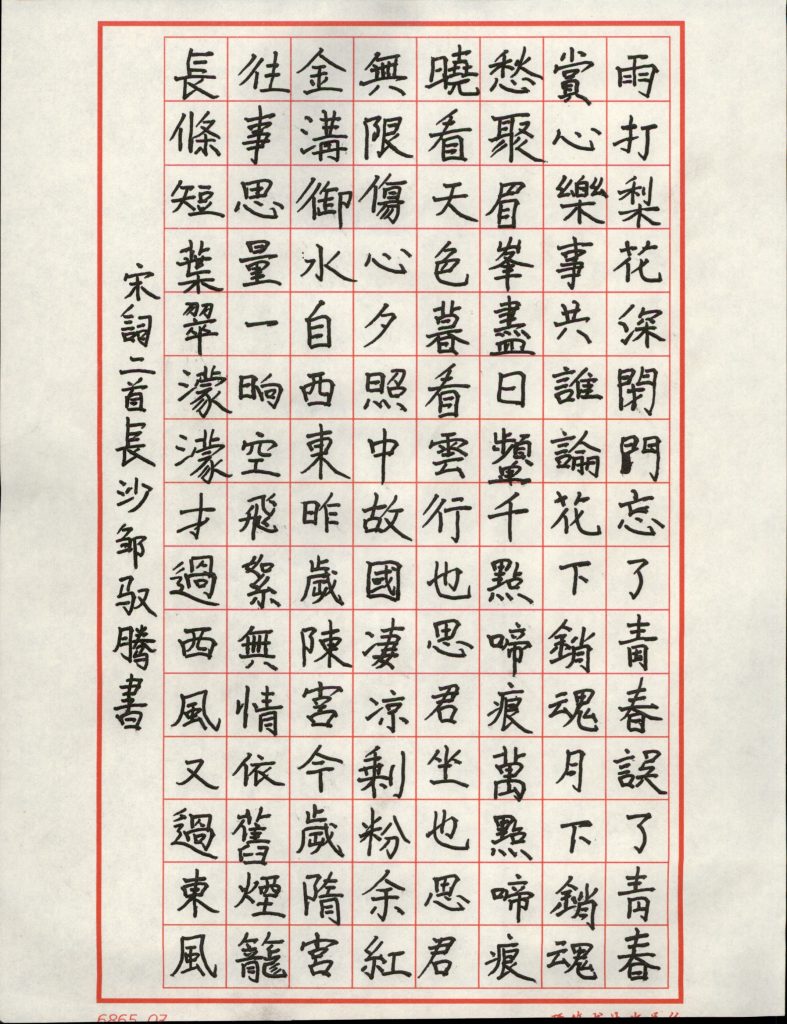 雨打梨花深閉門忘了青春誤了青春
賞心樂事共誰論花下銷魂月下銷魂
愁聚眉峯盡日顰千點啼痕萬點啼痕
曉看天色暮看雲行也思君坐也思君
無限傷心夕照中故國淒凉剩粉余紅
金溝御水自西東昨歲陳宮今歲隋宮
往事思量一晌空飛絮無情依舊煙籠
長條短葉翠濛濛才過西風又過東風
宋詞二首長沙邹驭騰書
6865.07